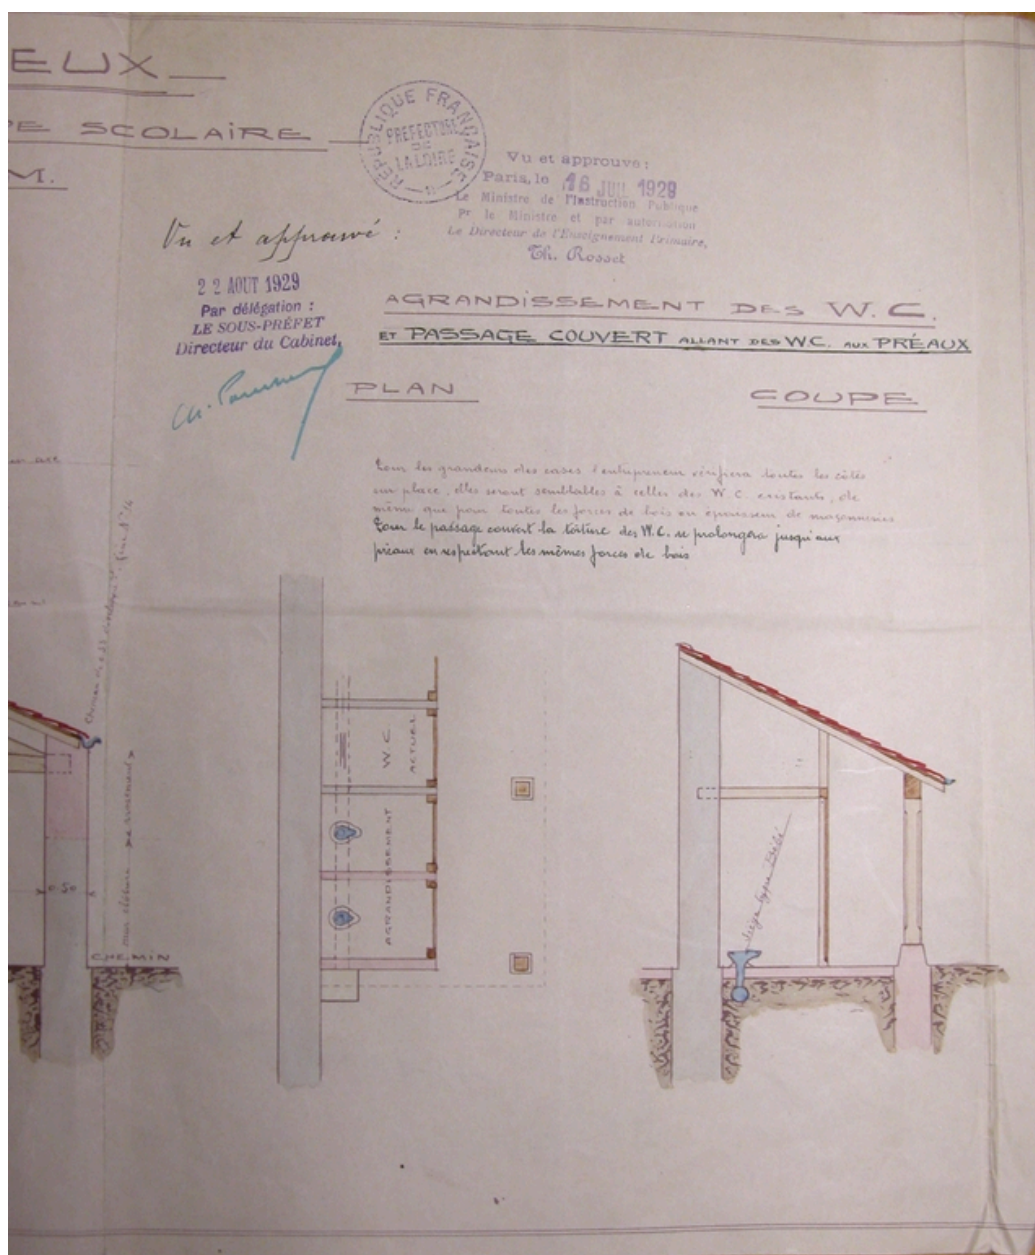 EUX
PE SCOLAIRE
M.
RÉPUBLIQUE FRANÇAISE
PREFECTURE
DE
LA LOIRE
Vu et approuvé :
Paris, le 16 JUIL 1929
Le Ministre de l'Instruction Publique
Pr le Ministre et par autorisation
Le Directeur de l'Enseignement Primaire,
Th. Rosset
Vu et approuvé :
22 AOUT 1929
Par délégation :
LE SOUS-PRÉFET
Directeur du Cabinet,
AGRANDISSEMENT DES W.C.
ET PASSAGE COUVERT ALLANT DES W.C. AUX PRÉAUX
PLAN
COUPE
Pour les grandeurs des cases l'entrepreneur vérifiera toutes les côtés
sur place, elles seront semblables à celles des W.C. existants, de
même que pour toutes les forces de bois ou épaisseur de maçonneries
Pour le passage couvert la toiture des W.C. se prolongera jusqu'aux
préaux en respectant les mêmes forces de bois
W.C.
ACTUEL
AGRANDISSEMENT
Siège type Bébé
0.50
CHEMIN